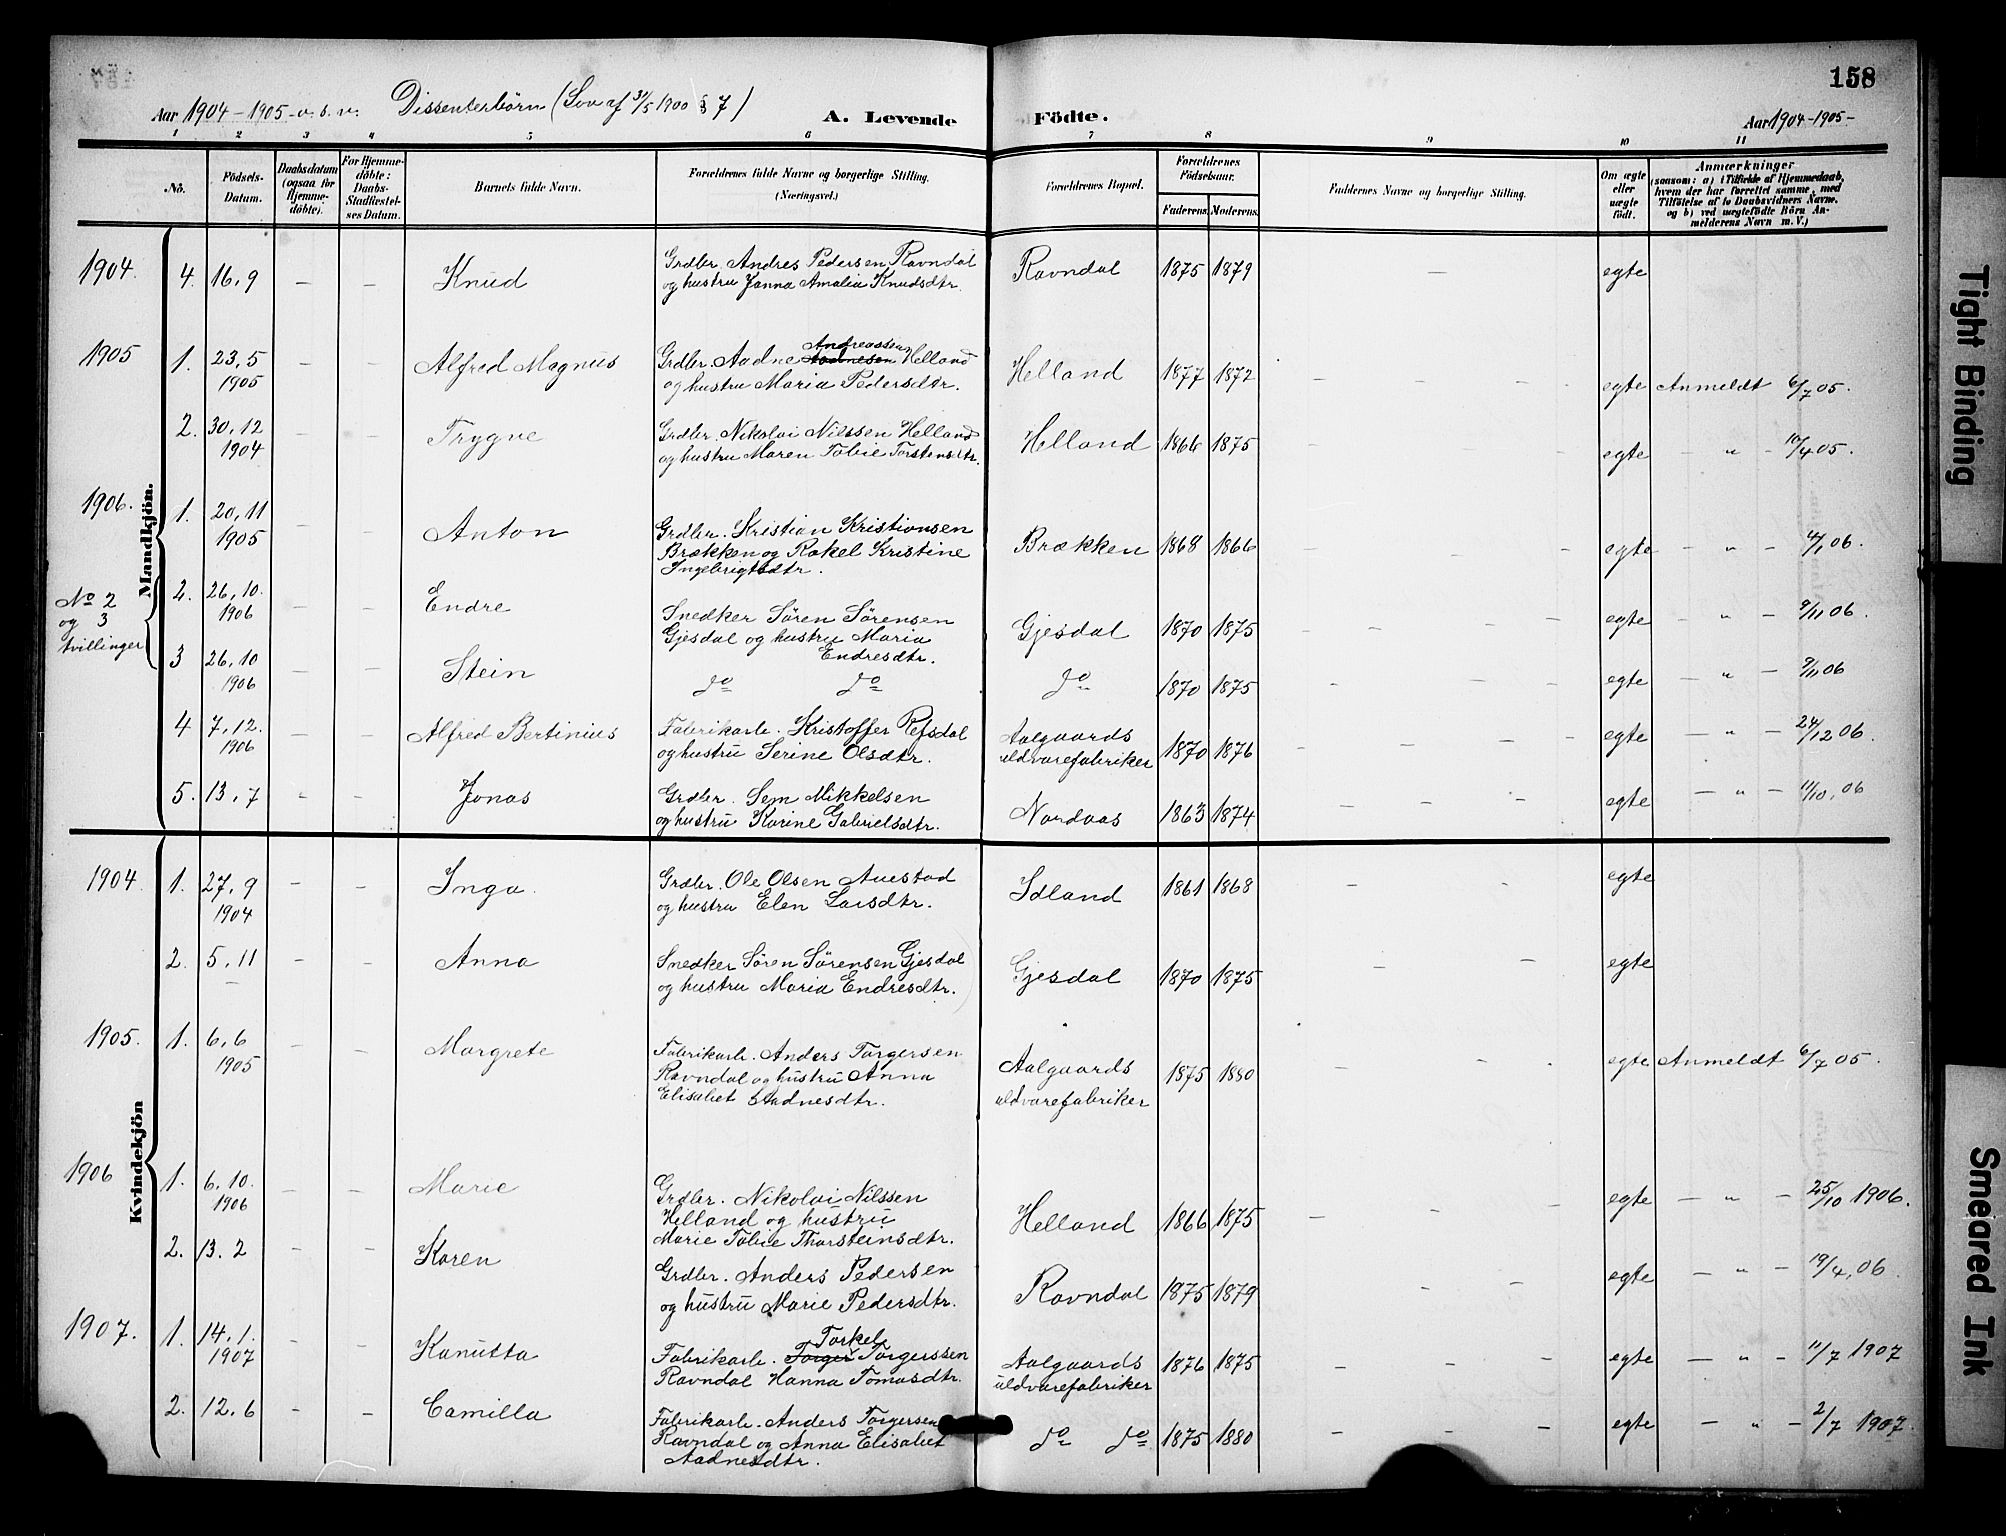 158
Aar 1904-1905-o.s.v. Dissenterbörn (Lov af 31/5 1900 § 7)
A. Levende Födte.
Aar 1904-1905-
1 2 3 4 5 6 7 8 9 10 11
No. | Födsels-Datum. | Daabsdatum (ogsaa for Hjemme-döbte). | For Hjemme-döbte: Daabs-Stadfæstel-ses Datum. | Barnets fulde Navn. | Forældrenes fulde Navne og borgerlige Stilling. (Næringsvei.) | Forældrenes Bopæl. | Forældrenes Födselsaar. Faderens. Moderens. | Faddernes Navne og borgerlige Stilling. | Om ægte eller uægte födt. | Anmærkninger (saasom: a) i Tilfælde af Hjemmedaab, hvem der har forrettet samme, med Tilföielse af to Daabsvidners Navne, og b) ved uægtefödte Börn An-melderens Navn m. V.)
Mandkjön.
1904. 4. 16.9 – – Knud Grdbr. Andres Pedersen Ravndal Ravndal 1875 1879 – egte
og hustru Janna Amalia Knudsdtr.
1905 1. 23.5 – – Alfred Magnus Grdbr. Aadne Aadnesen Andreassen Helland Helland 1877 1872 – – – egte Anmeldt 6/7 05.
1905 og hustru Maria Pedersdtr.
2. 30.12 – – Trygve Grdbr. Nikolai Nilssen Helland Helland 1866 1875 – – – egte – " 10/4 05.
1904 og hustru Maren Tobie Torstensdtr.
1906. 1. 20.11 – – Anton Grdbr. Kristian Kristiansen Brækken 1868 1866 – – – egte – " – 4/1 06.
1905 Brækken og Rakel Kristine
Ingebrigtsdtr.
No 2 og 3 tvillinger
2. 26.10. – – Endre Snedker Sören Sörensen Gjesdal 1870 1875 – – – egte – " – 9/11 06.
1906 Gjesdal og hustru Maria
Endresdtr.
3 26.10 – – Stein do do do 1870 1875 – – – egte – " – 9/11 06
1906
4 7.12. – – Alfred Bertinius Fabrikarb. Kristoffer Refsdal Aalgaards 1870 1876 – – – egte – " – 24/12 06.
1906 og hustru Serine Olsdtr. uldvarefabriker
5. 13.7 – – Jonas Grdbr. Sem Mikkelsen Nordaas 1863 1874 – – – egte – " – 11/10, 06
og hustru Karine Gabrielsdtr.
Kvindekjön
1904. 1. 27.9 – – Inga. Grdbr. Ole Olsen Auestad Idland 1861 1868 – – egte
1904 og hustru Elen Larsdtr.
2. 5.11 – – Anna Snedker Sören Sörensen Gjesdal Gjesdal 1870 1875 – – egte
– og hustru Maria Endresdtr.
1905. 1. 6.6 – – Margrete Fabrikarb. Anders Torgersen Aalgaards 1875 1880 – – – egte Anmeldt 6/7 05.
1905 Ravndal og hustru Anna uldvarefabriker
Elisabet Aadnesdtr.
1906 1. 6.10. – – Marie Grdbr. Nikolai Nilssen Helland 1866 1875 – – – egte – " – 25/10 1906.
1906 Helland og hustru
Marie Tobie Thorsteinsdtr.
2. 13.2 – – Karen Grdbr. Anders Pedersen Ravndal 1875 1879 – – – egte – " – 19/4, 06.
og hustru Marie Pedersdtr.
1907. 1. 14.1. – – Kanutta Fabrikarb. Torger Torkel Torgerssen Aalgaards 1876 1875 – – – egte – " – 11/7 1907
1907 Ravndal Hanna Tomasdtr. uldvarefabriker
2. 12.6 – – Camilla Fabrikarb. Anders Torgersen do do 1875 1880 – – – egte – " – 2/7 1907.
Ravndal og Anna Elisabet
Aadnesdtr.
Tight Binding
Smeared Ink